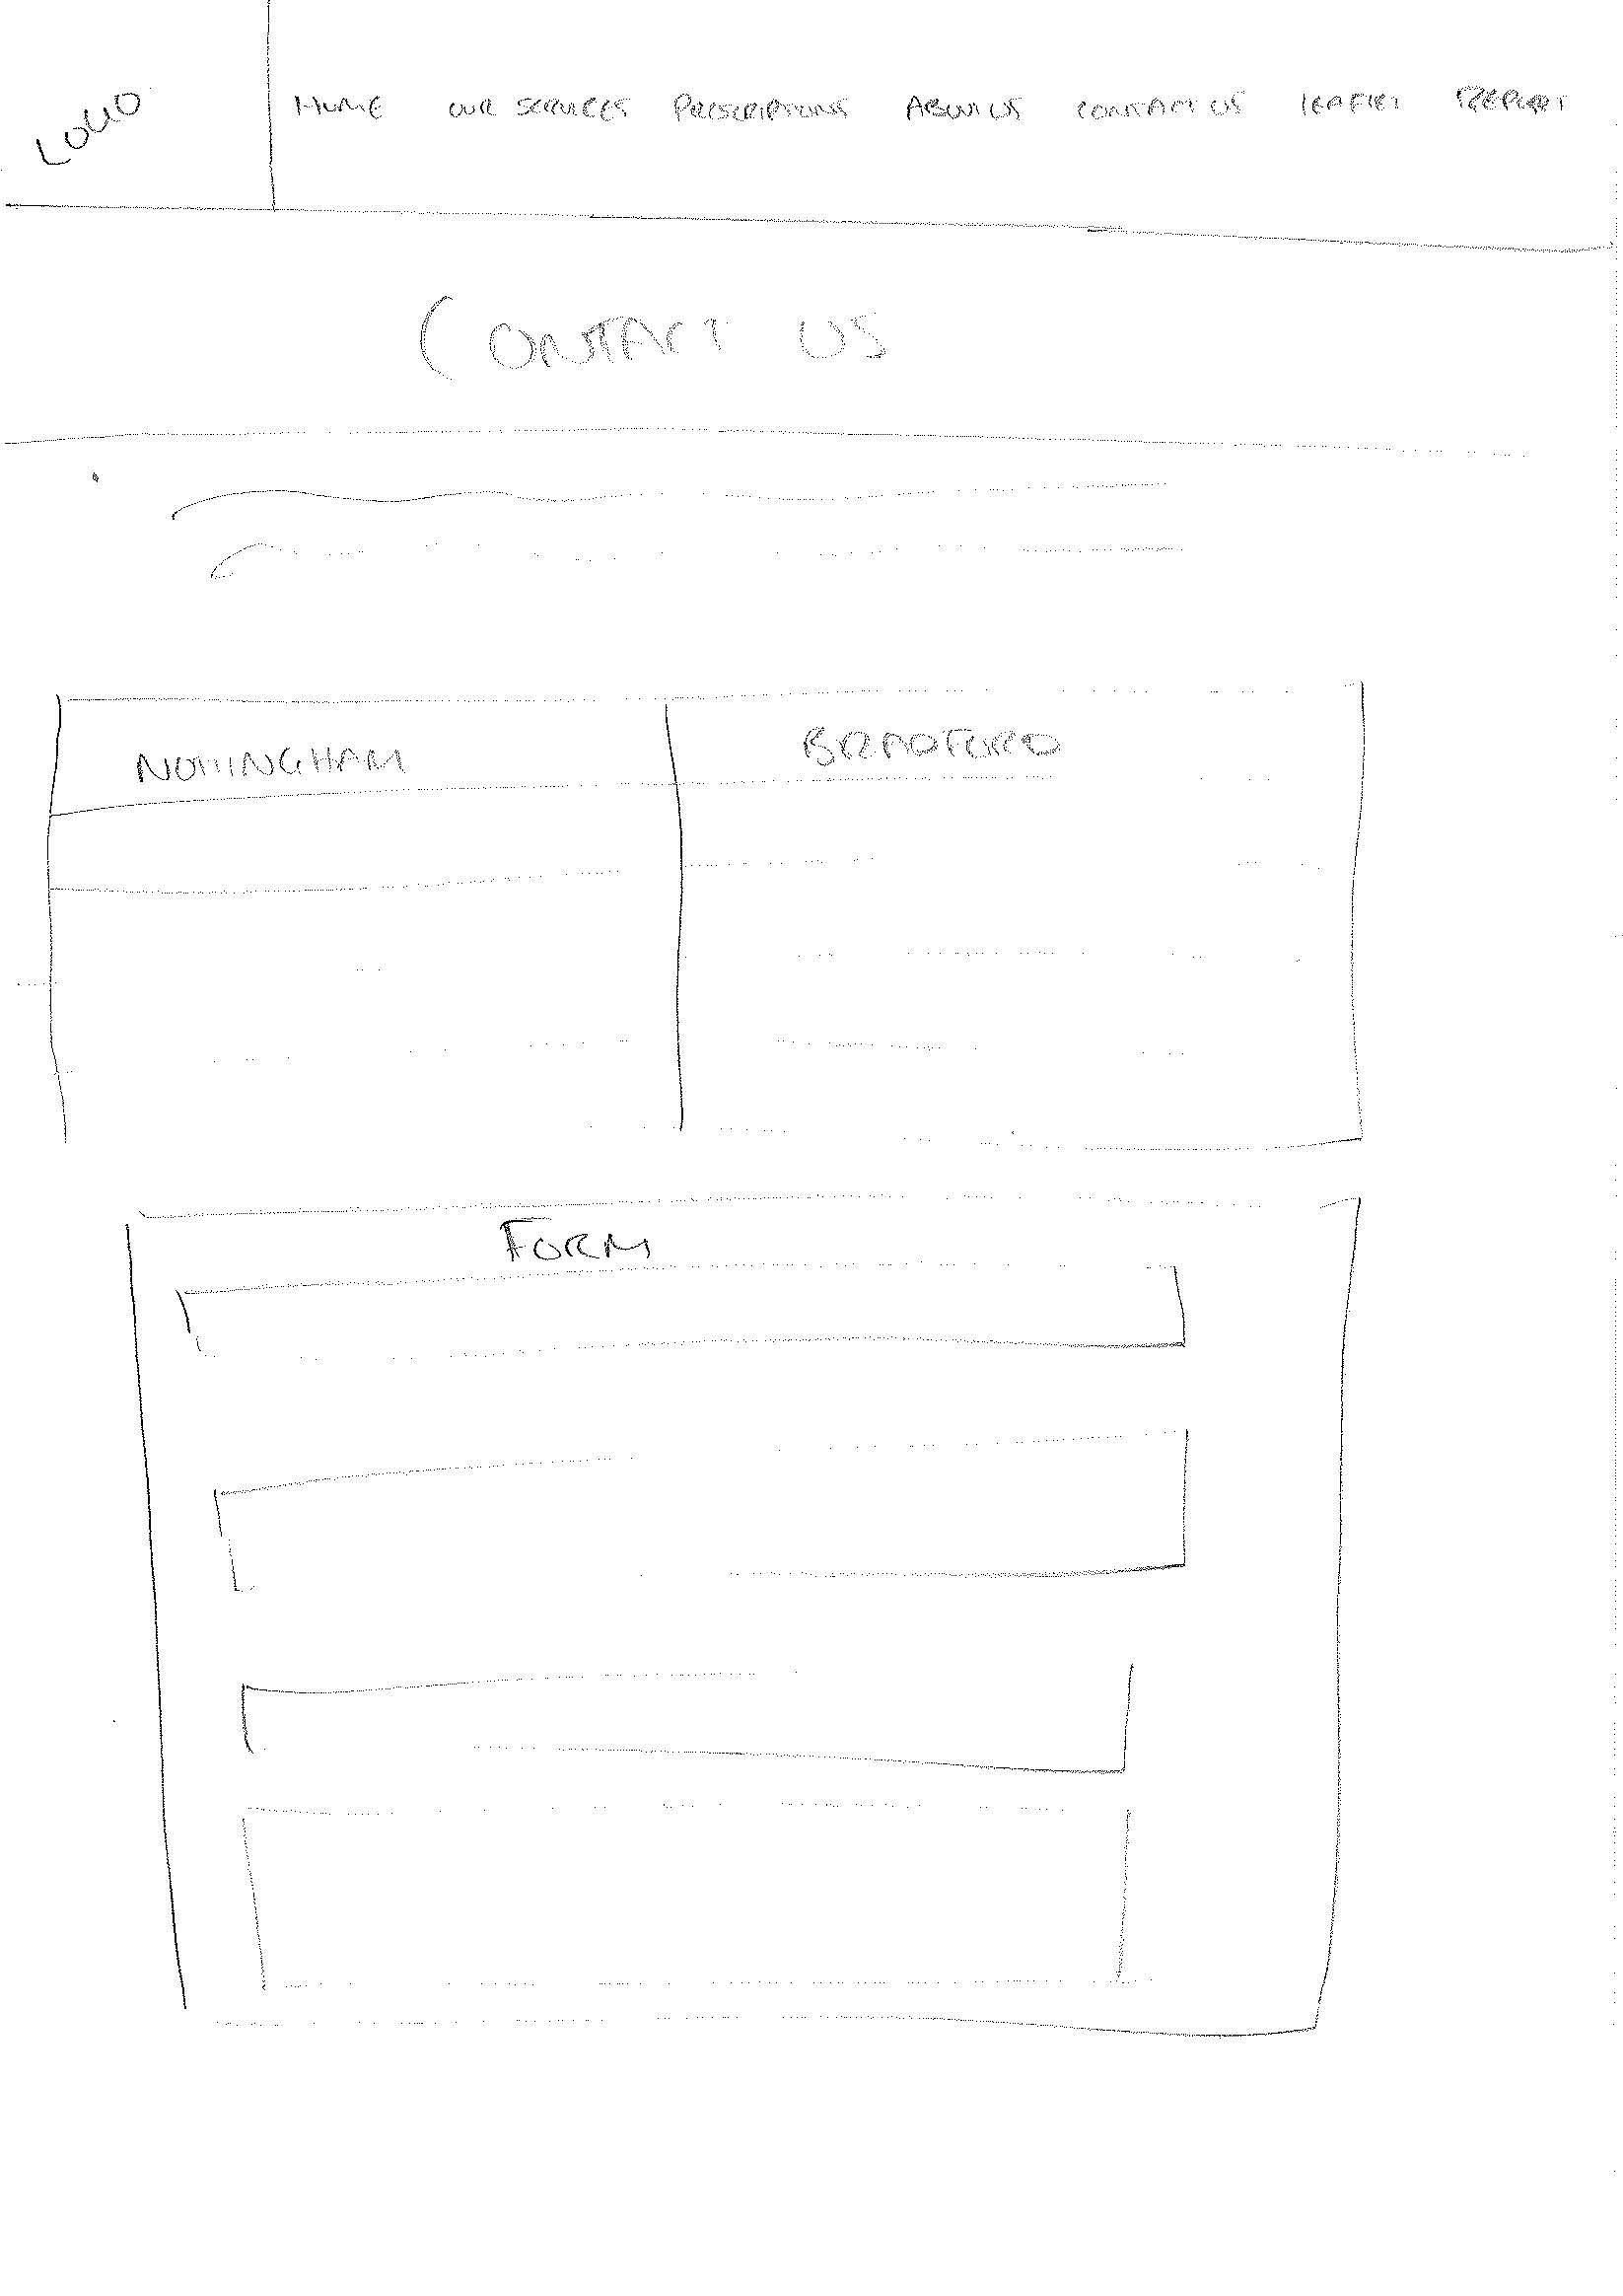 LOGO
HOME OUR SERVICES PRESCRIPTIONS ABOUT US CONTACT US LEAFLET REPORT
CONTACT US
NOTTINGHAM BRADFORD
FORM